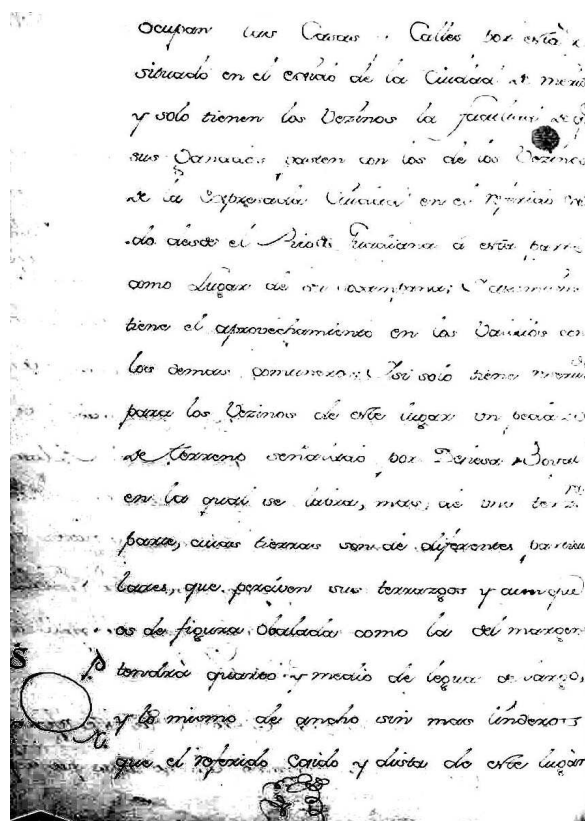 ocupan sus Casas y Calles por està
situado en el exido de la Ciudad de
y solo tienen los Vezinos la facultad de q
sus Ganados pasten con los de los Vezinos
de la expresada Ciudad en el referido
do desde el Rio de Guadiana á esta parte
como Lugar de su
tiene el aprovechamiento en los Valdios con
los demas comuneros: Asi solo tiene
para los Vezinos de este lugar un pedazo
de terreno señalado por Dehesa Boyal
en la qual se labra, mas, de una terz.
parte, cuias tierras son de diferentes particu
lares, que perciven sus terrazgos y aunque
es de figura Obalada como la del margen
tendrà quarto y medio de legua de largo,
y lo mismo de ancho sin mas linderos
que el referido Exido y dista de este lugar